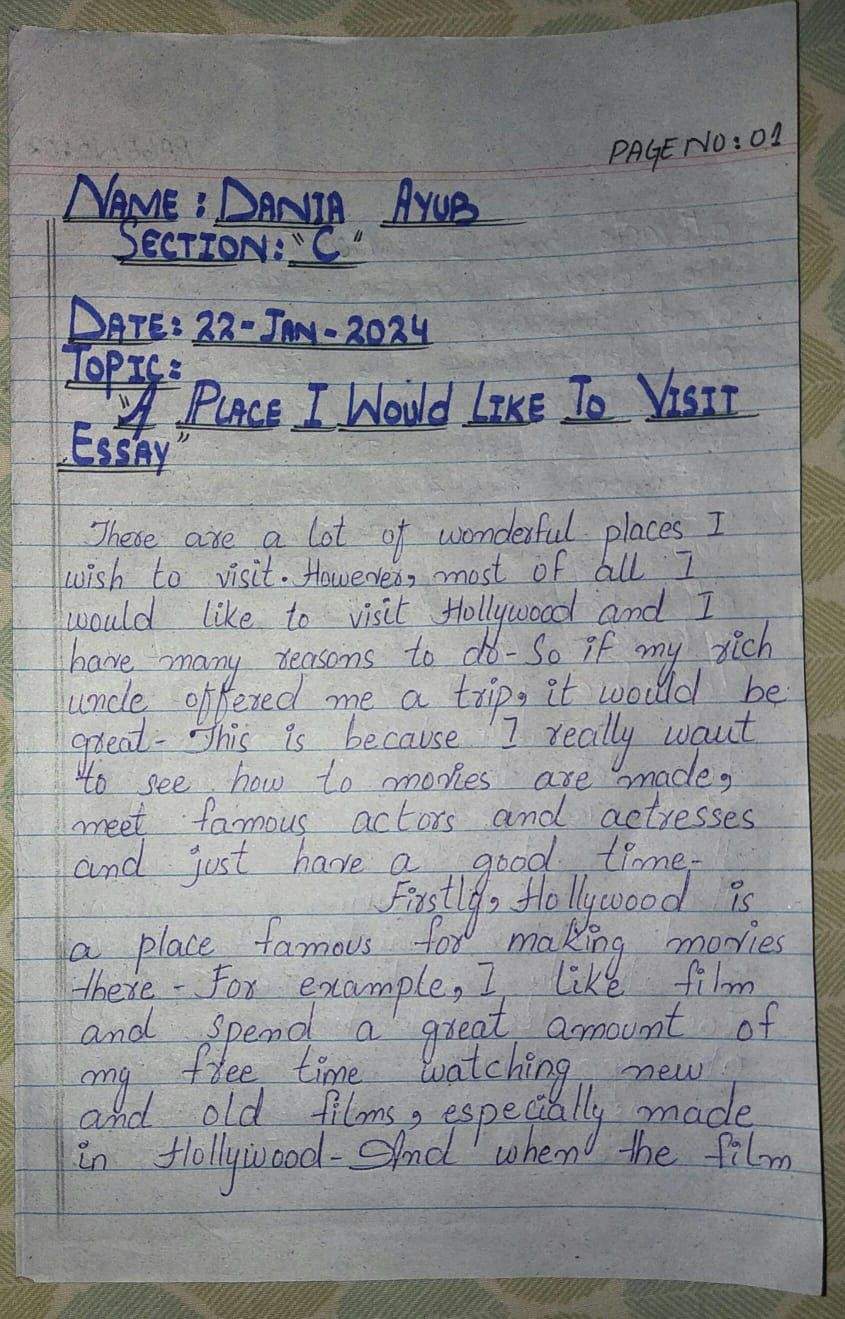 PAGE NO: 01
NAME: DANIA AYUB
SECTION: "C"
DATE: 22-JAN-2024
TOPIC:
"A PLACE I WOULD LIKE TO VISIT
ESSAY"
There are a lot of wonderful places I
wish to visit. However, most of all I
would like to visit Hollywood and I
have many reasons to do- So if my rich
uncle offered me a trip, it would be
great- This is because I really want
to see how to movies are made,
meet famous actors and actresses
and just have a good time-
Firstly, Hollywood is
a place famous for making movies
there- For example, I like film
and spend a great amount of
my free time watching new
and old films, especially made
in Hollywood- And when the film